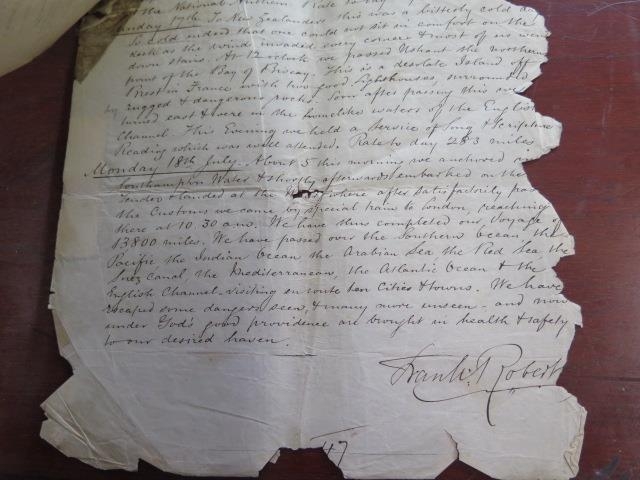 the National Anthem. Rate to day
Sunday 17th To New Zealanders this was a bitterly cold da
So cold indeed that one could not sit in comfort on the
deck as the wind invaded every corner & most of us were
down stairs. At 12 o'clock we passed Ushant the northern
point of the Bay of Biscay. This is a desolate Island off
Brest in France with two good lighthouses, surrounded
by rugged & dangerous rocks. Soon after passing this we
turned east & were in the homelike waters of the English
Channel. This Evening we held a Service of Song & Scripture
Reading which was well attended. Rate to day 283 miles
Monday 18th July. About 5 this morning we anchored in
Southampton Water & shortly afterwards embarked on the
Tender & landed at the where after satisfactorily pas
the Customs we came by special train to London, reaching
there at 10.30 am. We have thus completed our Voyage of
13800 miles. We have passed over the Southern Ocean the
Pacific the Indian Ocean the Arabian Sea the Red Sea the
Suez Canal, the Mediterranean, the Atlantic Ocean & the
English Channel - visiting en route ten Cities & towns. We have
escaped some dangers seen, & many more unseen - and now
under God's good providence are brought in health & safety
to our desired haven.
Frank Robert
47